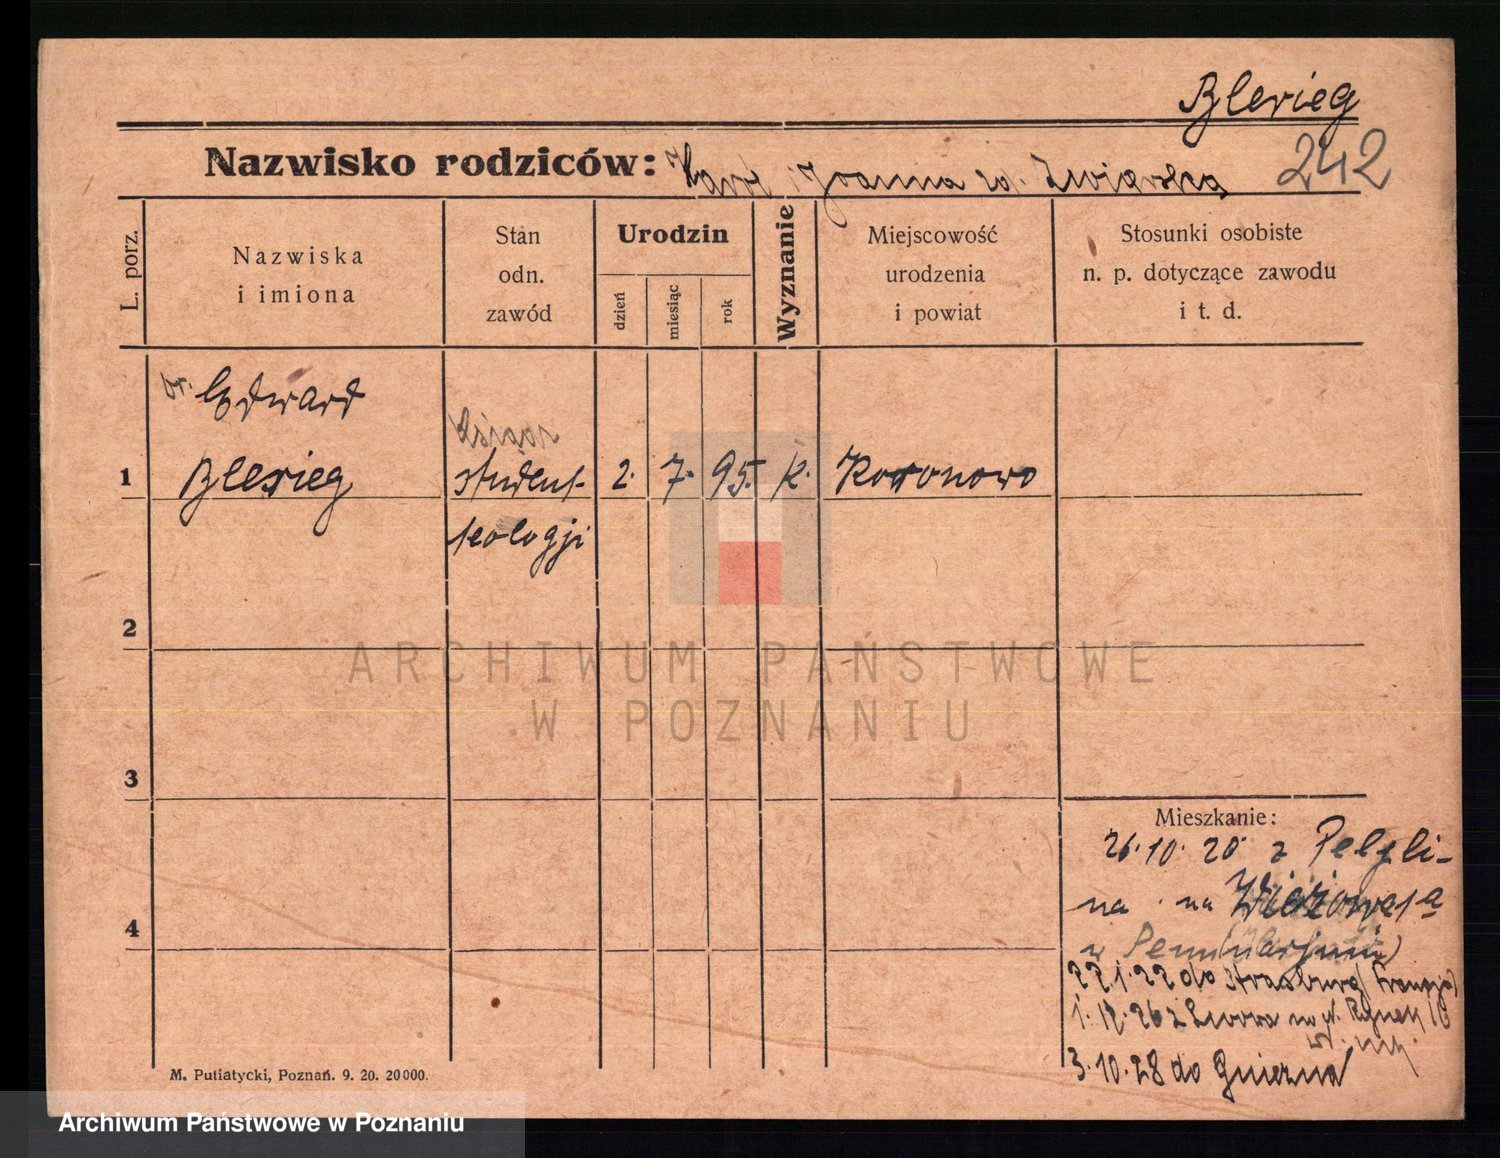 Blerieg
242
Nazwisko rodziców: Karol i Joanna zd. Zwiarska
L. porz.
Nazwiska
i imiona
Stan
odn.
zawód
Urodzin
dzień
miesiąc
rok
Wyznanie
Miejscowość
urodzenia
i powiat
Stosunki osobiste
n. p. dotyczące zawodu
i t. d.
dr. Edward
ksiądz
1 Blerieg student 2. 7. 95. k. Koronowo
teologji
2
3
4
Mieszkanie:
26.10.20 z Pelpli-
na na Wieżowa 1a
w Seminarjum
22.1.22 do Strasburg (Francja)
1. 12. 26 z Lwowa na st. Rynek
3.10.28 do Gniezna
M. Putiatycki, Poznań. 9. 20. 20000.
ARCHIWUM PAŃSTWOWE
W POZNANIU
Archiwum Państwowe w Poznaniu